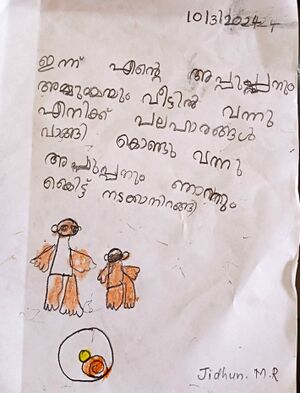 10/3/2024
ഇന്ന് എന്റെ അപ്പൂപ്പനും
അമ്മുമ്മയും വീട്ടിൽ വന്നു
എനിക്ക് പലഹാരങ്ങൾ
വാങ്ങി കൊണ്ടു വന്നു
അപ്പുപ്പനും ഞാനും
നടക്കാനിറങ്ങി
Jidhun. M.R